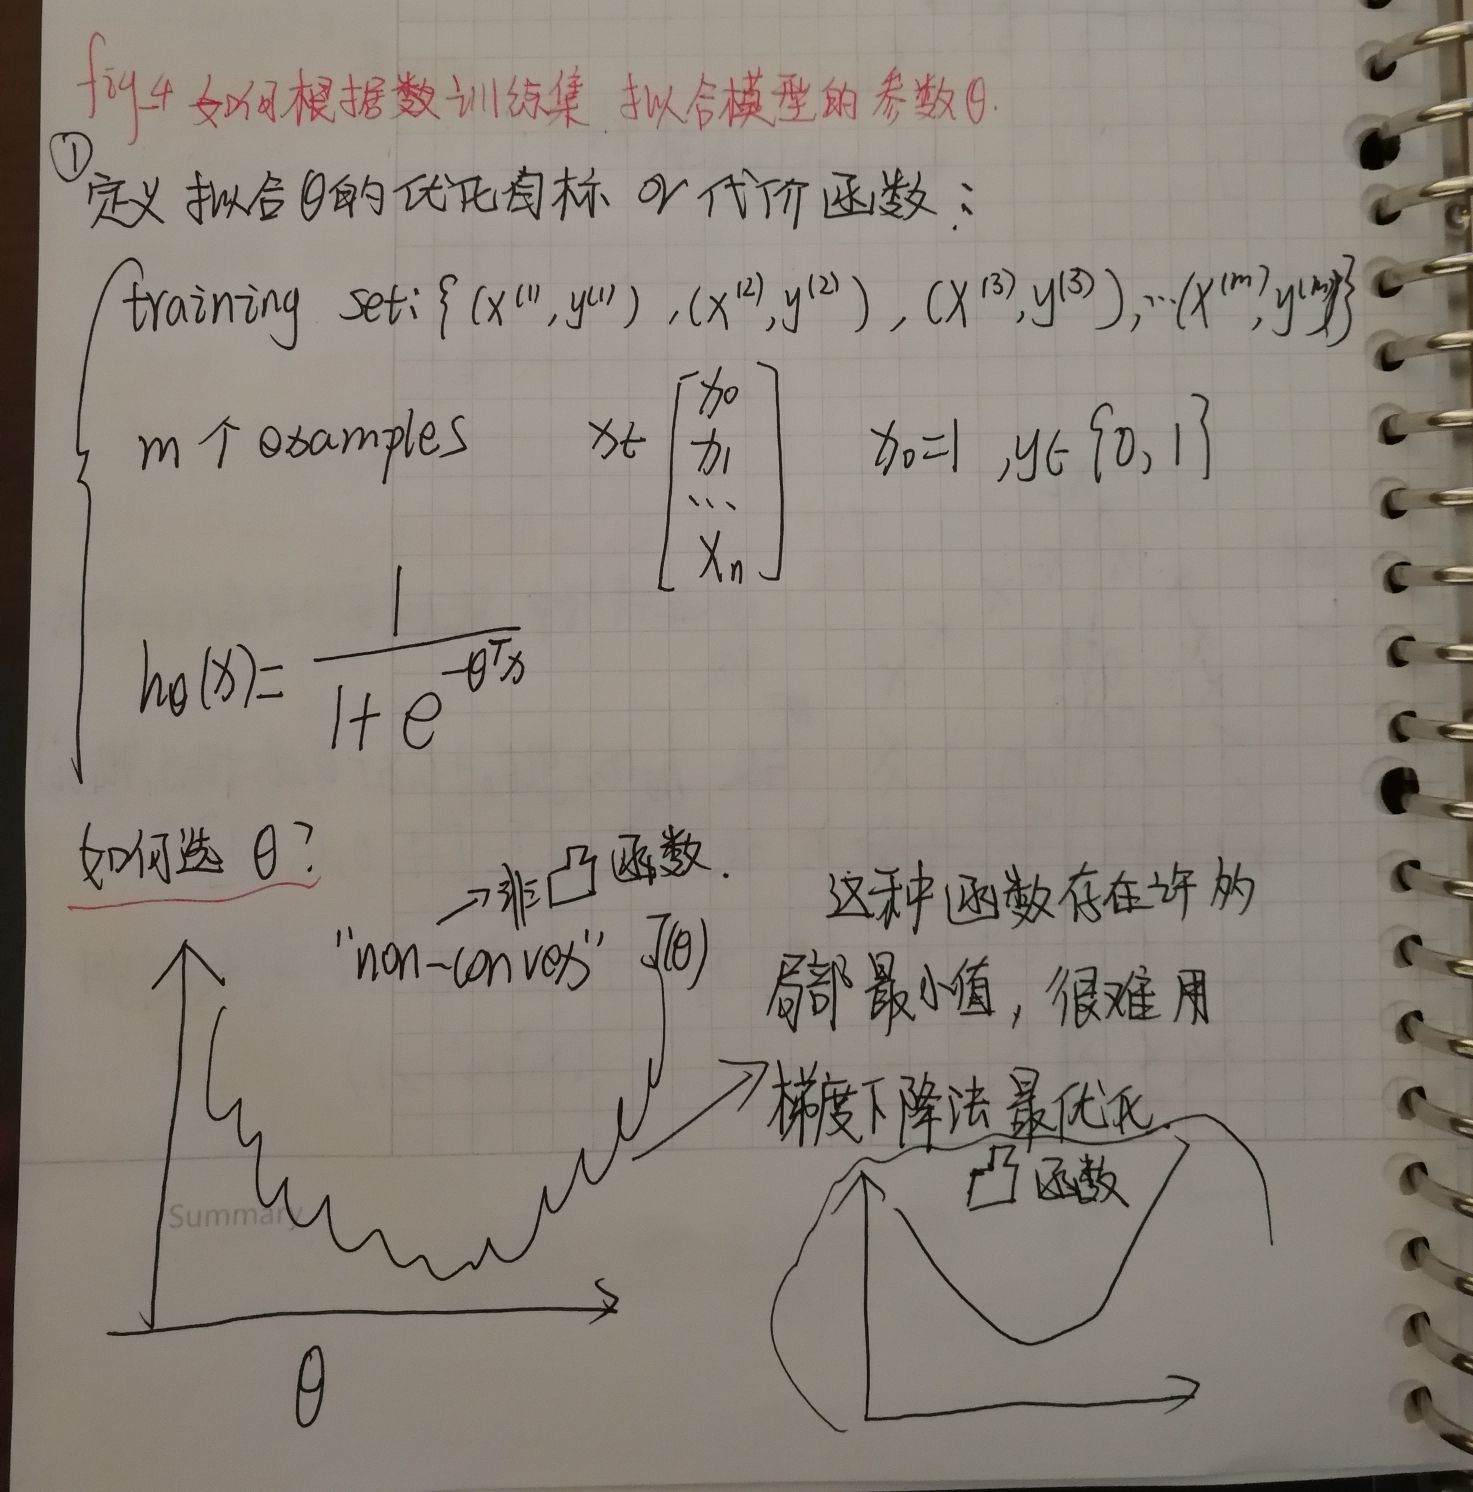 fig 4 如何根据数训练集 拟合模型的参数θ.
① 定义拟合θ的优化目标 or 代价函数:
training set: {(x⁽¹⁾, y⁽¹⁾), (x⁽²⁾, y⁽²⁾), (x⁽³⁾, y⁽³⁾), …(x⁽ᵐ⁾, y⁽ᵐ⁾)}
m个examples x∈ [x₀ x₁ … xₙ] x₀=1, y∈{0, 1}
h_θ(x)= 1 / (1+e^(-θᵀx))
如何选 θ?
→非凸函数.
"non-convex" J(θ)
这种函数存在许多
局部最小值, 很难用
梯度下降法最优化.
凸函数
Summary
θ